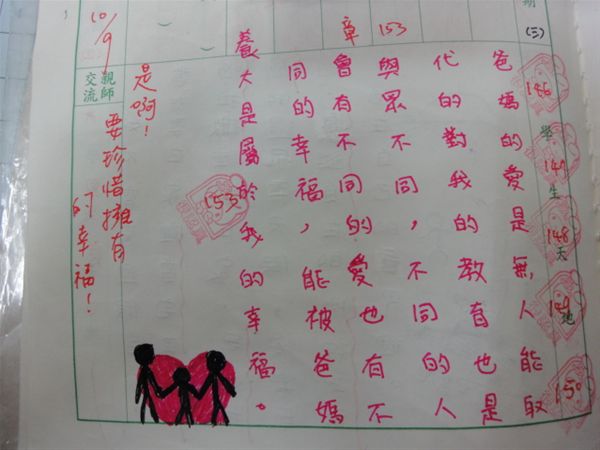 期
(三)
學生天地
146
149
148
149
150
章 153
爸媽的愛是無人能取
代的對我的教育也是
與眾不同，不同的人
會有不同的愛也有不
同的幸福，能被爸媽
養大是屬於我的幸福。
153
親師交流
10/9
是啊！
要珍惜擁有
的幸福！